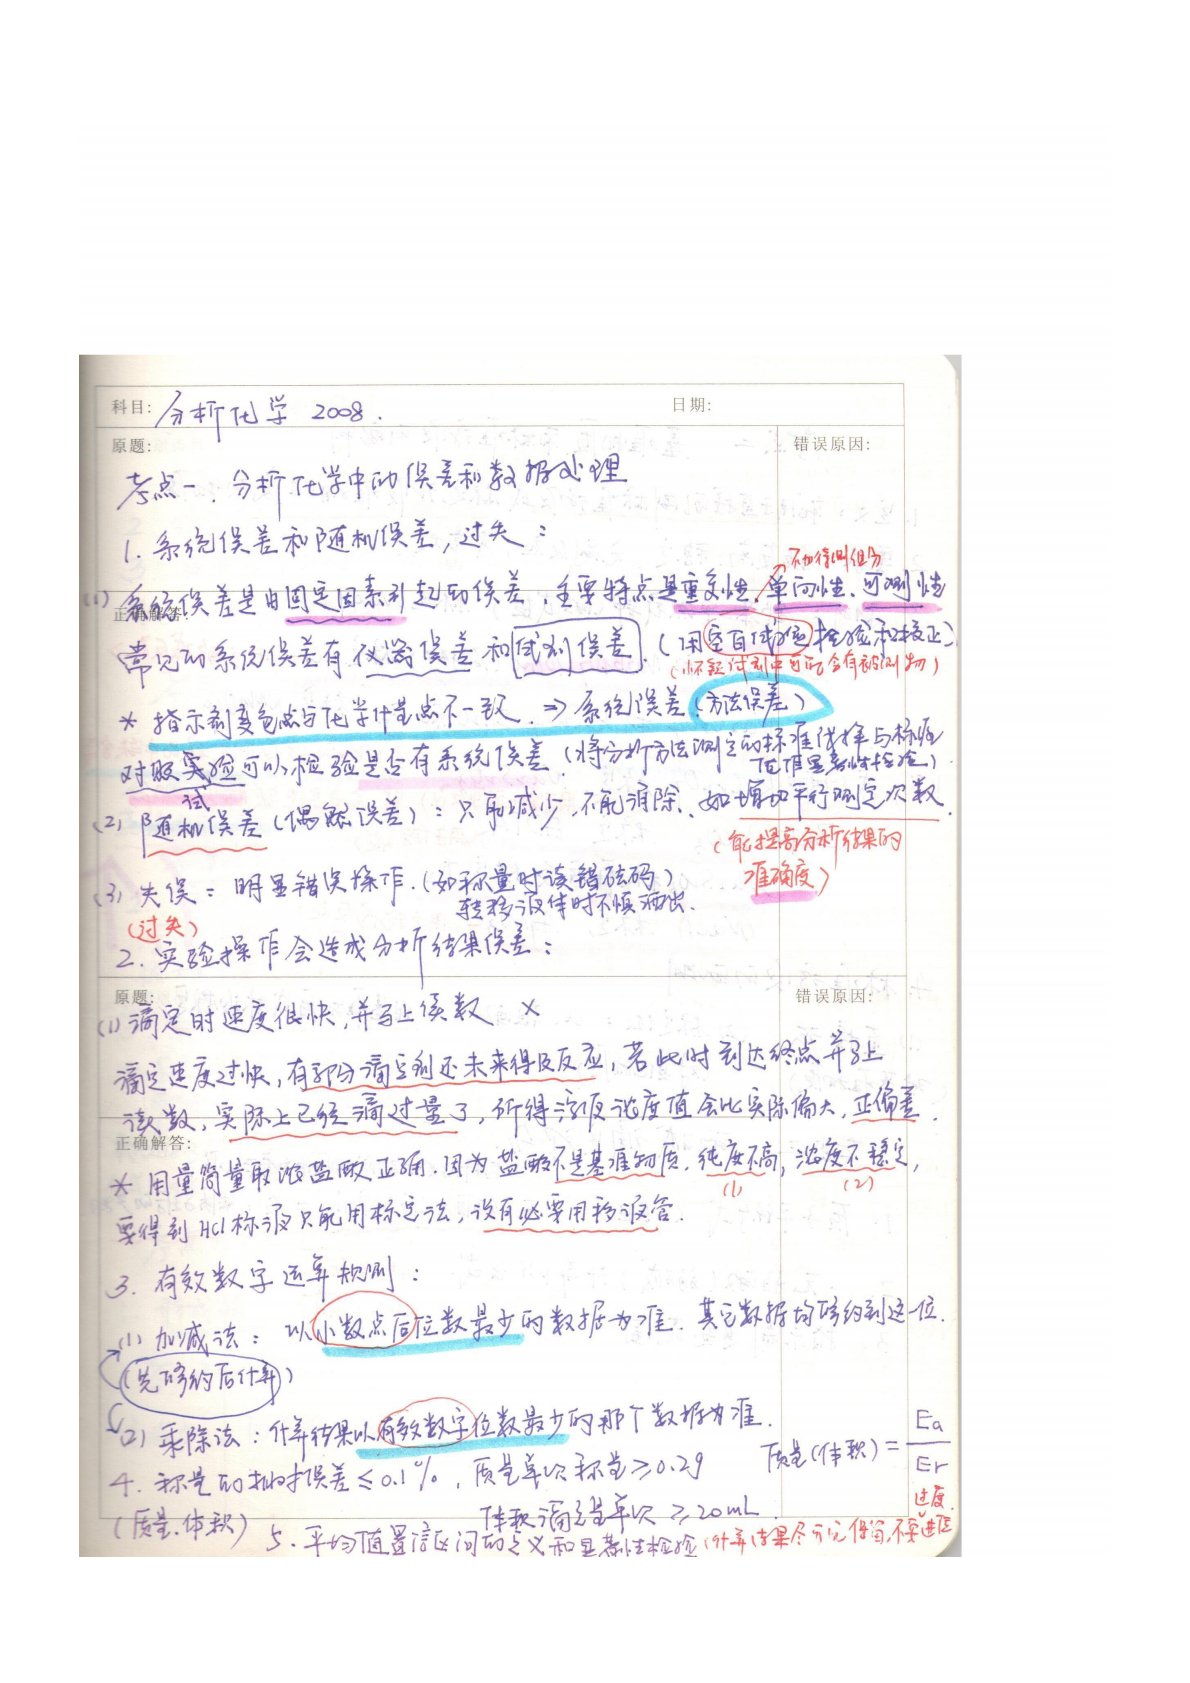 科目: 分析化学 2008. 日期:
原题: 错误原因:
考点一. 分析化学中的误差和数据处理
1. 系统误差和随机误差, 过失:
不加待测组分
(1) 系统误差是由固定因素引起的误差, 主要特点是重复性、单向性、可测性
正确解答:
常见的系统误差有仪器误差和试剂误差. (用空白试验检验和校正)
(怀疑试剂中可能含有被测物)
* 指示剂变色点与化学计量点不一致. ⇒ 系统误差(方法误差)
对照实验可以检验是否有系统误差 (将分析方法测定的标准试样与标准
值作显著性检验)
试
(2) 随机误差(偶然误差): 只能减少, 不能消除、如增加平行测定次数.
(能提高分析结果的
准确度)
(3) 失误: 明显错误操作. (如称量时读错砝码)
转移液体时不慎洒出.
(过失)
2. 实验操作会造成分析结果误差:
原题: 错误原因:
(1) 滴定时速度很快, 并马上读数 ×
滴定速度过快, 有部分滴定剂还未来得及反应, 若此时到达终点并马上
读数, 实际上已经滴过量了, 所得溶液浓度值会比实际偏大, 正偏差.
正确解答:
* 用量筒量取浓盐酸正确. 因为盐酸不是基准物质. 纯度不高, 浓度不稳定,
(1) (2)
要得到HCl标液只能用标定法, 没有必要用移液管.
3. 有效数字运算规则:
(1) 加减法: 以小数点后位数最少的数据为准. 其它数据均修约到这一位.
(先修约后计算)
(2) 乘除法: 计算结果以有效数字位数最少的那个数据为准.
质量(体积) = Ea / Er
4. 称量的相对误差 ≤ 0.1%, 质量单次称量 ≥ 0.2g
(质量.体积) 体积滴定量单次 ≥ 20mL.
过度.
5. 平均值置信区间的含义和显著性检验 (计算结果尽可能保留, 不要进位